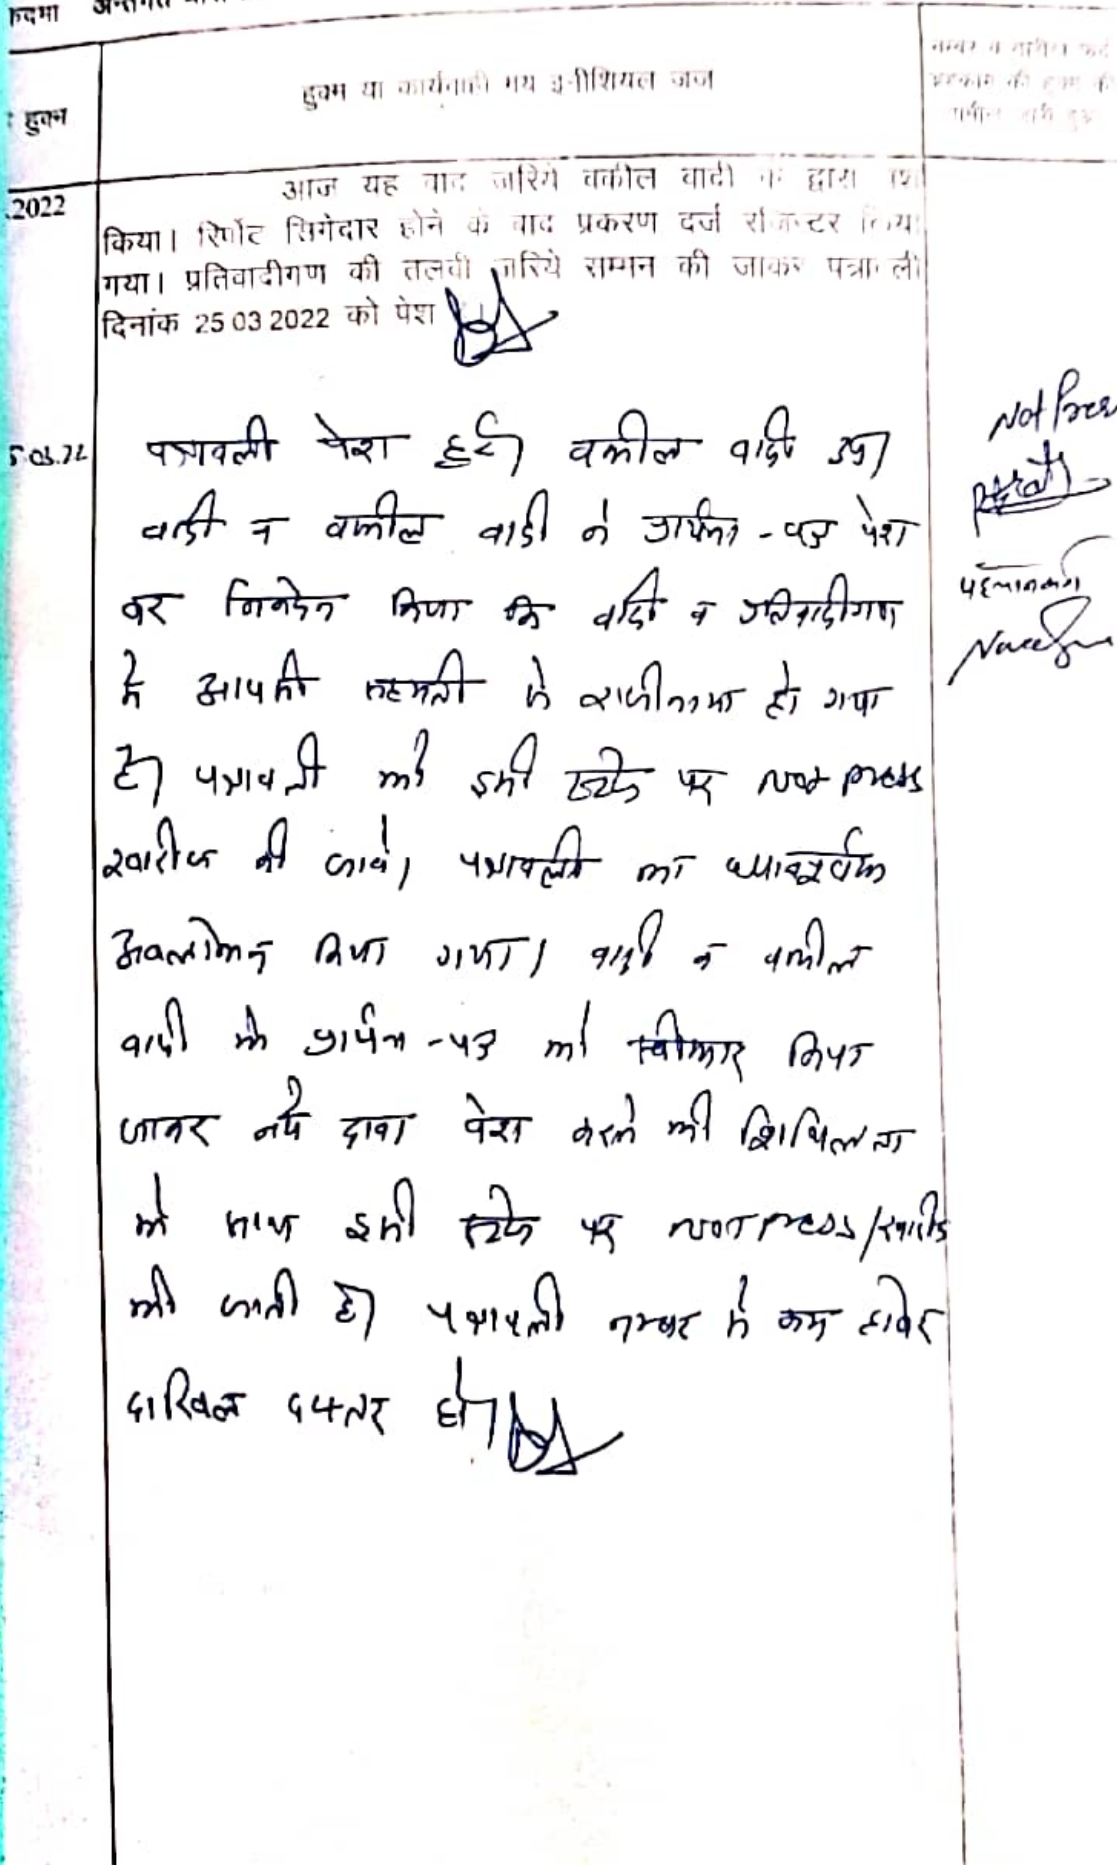 हुक्म या कार्यवाही मय इनीशियल जज
हुक्म
.2022
आज यह वाद जरिये वकील वादी के द्वारा पेश
किया। रिर्पोट सिगेदार होने के बाद प्रकरण दर्ज रजिस्टर किया
गया। प्रतिवादीगण की तलवी जरिये सम्मन की जाकर पत्रावली
दिनांक 25 03 2022 को पेश
5.03.22
पत्रावली पेश हुई। वकील वादी उप।
वादी व वकील वादी ने प्रार्थना-पत्र पेश
कर निवेदन किया कि वादी व प्रतिवादीगण
में आपसी सहमती से राजीनामा हो गया
है। पत्रावली को इसी स्टेज पर Not press
खारीज की जावे। पत्रावली का ध्यानपूर्वक
अवलोकन किया गया। वादी व वकील
वादी के प्रार्थना-पत्र को स्वीकार किया
जाकर नये दावा पेश करने की शिथिलता
के साथ इसी स्टेज पर NOT PRESS/खारीज
की जाती है। पत्रावली नम्बर से कम होकर
दाखिल दफ्तर हो।
Not Press
पहचानकर्ता